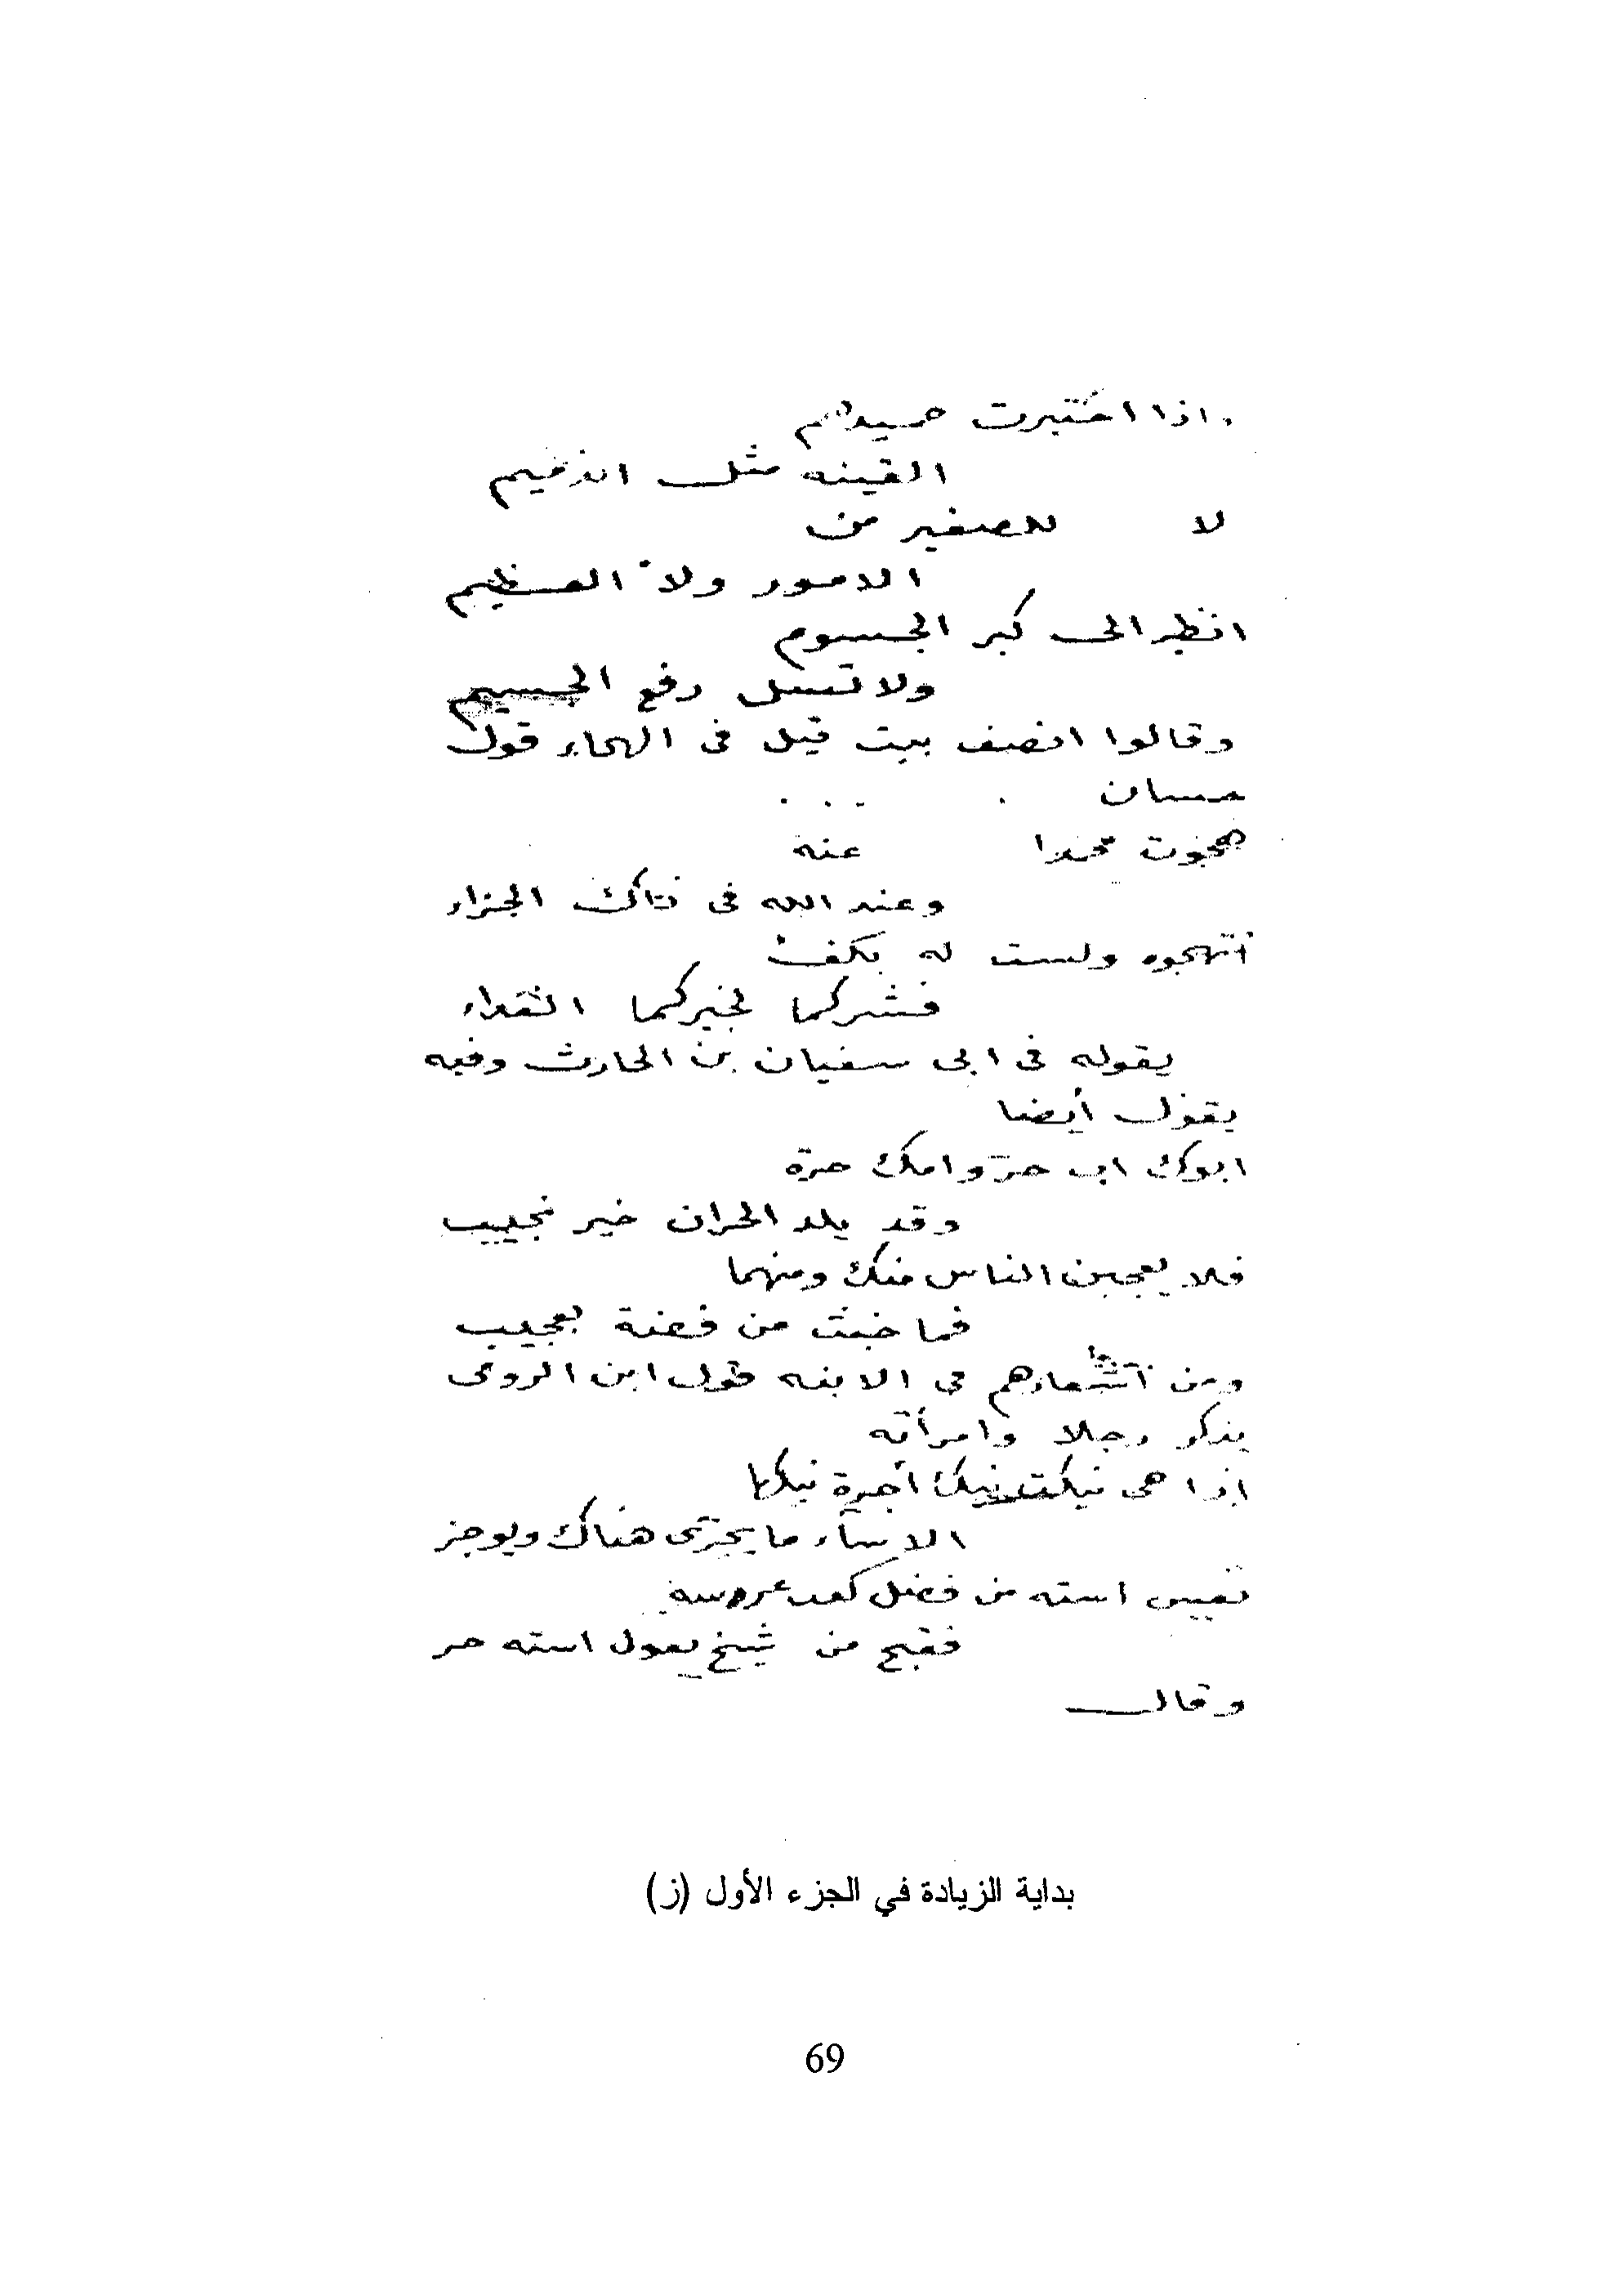 واذا اختبرت حميدهم
القيته مثل الذميم
لا للصغير من
الامور ولا العظيم
انظر الى كبر الجسوم
ولا تسل رفع الجسيم
وقالوا انصف بيت قيل فى الهجاء قول
حسان
هجوت محمدا عنه
وعند الله فى ذاك الجزاء
أتهجوه ولست له بكفء
فشركما لخيركما الفداء
يقوله فى ابى سفيان بن الحارث وفيه
يقول أيضا
ابوك اب حر وامك حرة
وقد يلد الحران خير نجيب
فلا يعجبن الناس منك ومنهما
فما خبث من فضة بعجيب
ومن أشعارهم فى الابنه قول ابن الرومى
يذكر رجلا وامرأته
اذا هى نيكت نيك أجرة نيكها
الا ساء ما يجزى هناك ويوجز
استه من فضل عروسه
فقبح من شيخ يعول استه حر
وقال
بداية الزيادة في الجزء الأول (ز)
69